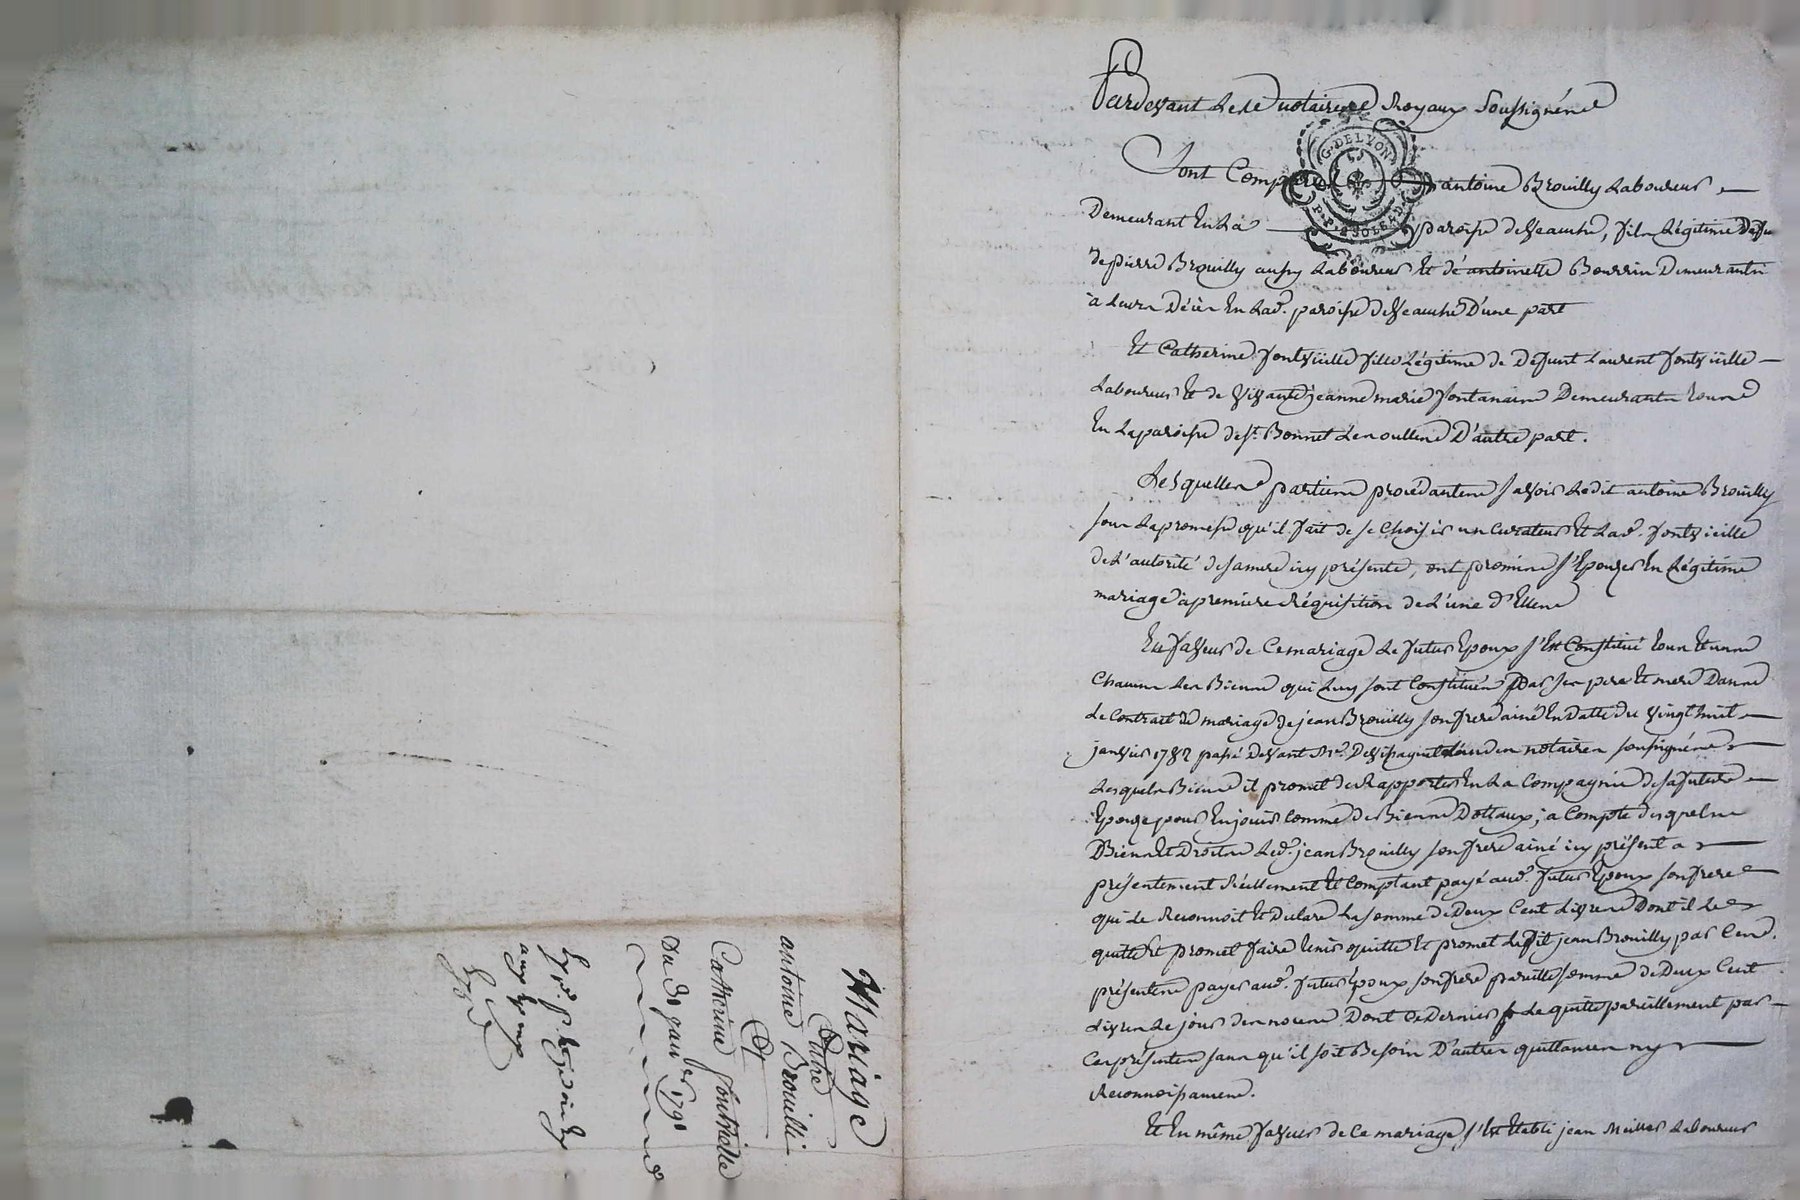 Mariage
Entre
antoine Brouilli
Et
Catherine fontvielle
Du 30 janver 1790
Pardevant Les notaires Royaux Soussignés
G. DE LYON
Sont Comparus antoine Brouilly Laboureur
Demeurant En La paroisse de Veauche, fils Légitime
de pierre Brouilly aussy Laboureur Et de antoinette Bourrin Demeurants
à Leurs Décès En Lad. paroisse de Veauche D'une part
Et Catherine fontvieille fille Légitime de Défunt Laurent fontvieille
Laboureur Et de vivante jeanne marie fontanais Demeurants
En La paroisse de St. Bonnet Les oulles D'autre part.
Lesquelles parties procédantes savoir Ledit antoine Brouilly
sous La promesse qu'il fait de se choisir un Curateur Et Lad. fontvieille
de L'autorité de sa mere icy présente, ont promis s'Epouser En Légitime
mariage à premiere Réquisition de L'une d'Elles
En faveur de Ce mariage Le futur Epoux s'Est Constitué tous Et uns
Chacuns Les Biens qui Luy sont Constitués par ses pere Et mere Dans
Le Contrat de mariage de jean Brouilly son frere ainé En datte du vingt huit
janvier 1782 passé Devant notaires soussignés
Lesquels Biens il promet de Rapporter En La Compagnie de sa future
Epouse pour En jouir Comme de Biens Dottaux; a Compte desquels
Biens Et Droits Led. jean Brouilly son frere ainé icy présent a
présentement Réellement Et Comptant payé aud. futur Epoux son frere
qui Le Reconnoit Et Déclare La somme de Deux Cent Livres Dont il Le
quitte Et promet faire tenir quitte Et promet Ledit jean Brouilly par Ces
présentes payer aud. futur Epoux son frere pareille somme de Deux Cent
Livres Le jour des noces Dont Ce Dernier Le quitte pareillement par
Ces présentes sans qu'il soit Besoin D'autres quittances ny
Reconnoissances.
Et En même faveur de Ce mariage s'Est Etabli jean Laboureur